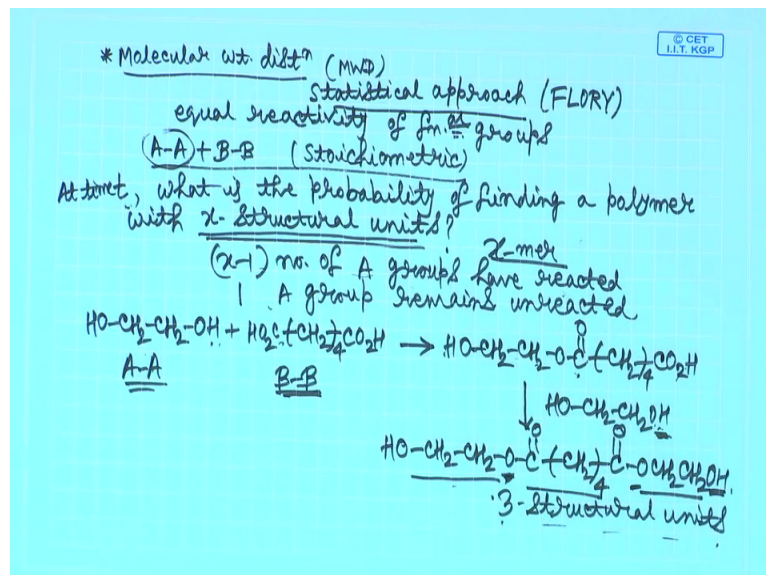 © CET
I.I.T. KGP
* Molecular wt. distⁿ (MWD)
Statistical approach (FLORY)
equal reactivity of fn.al groups
A-A + B-B (Stoichiometric)
At time t, what is the probability of finding a polymer
with x-Structural units?
x-mer
(x-1) no. of A groups have reacted
1 A group remains unreacted
HO-CH₂-CH₂-OH + HO₂C-(CH₂)₄-CO₂H → HO-CH₂-CH₂-O-C(=O)-(CH₂)₄-CO₂H
A-A B-B
↓ HO-CH₂-CH₂OH
HO-CH₂-CH₂-O-C(=O)-(CH₂)₄-C(=O)-OCH₂CH₂OH.
3-Structural units